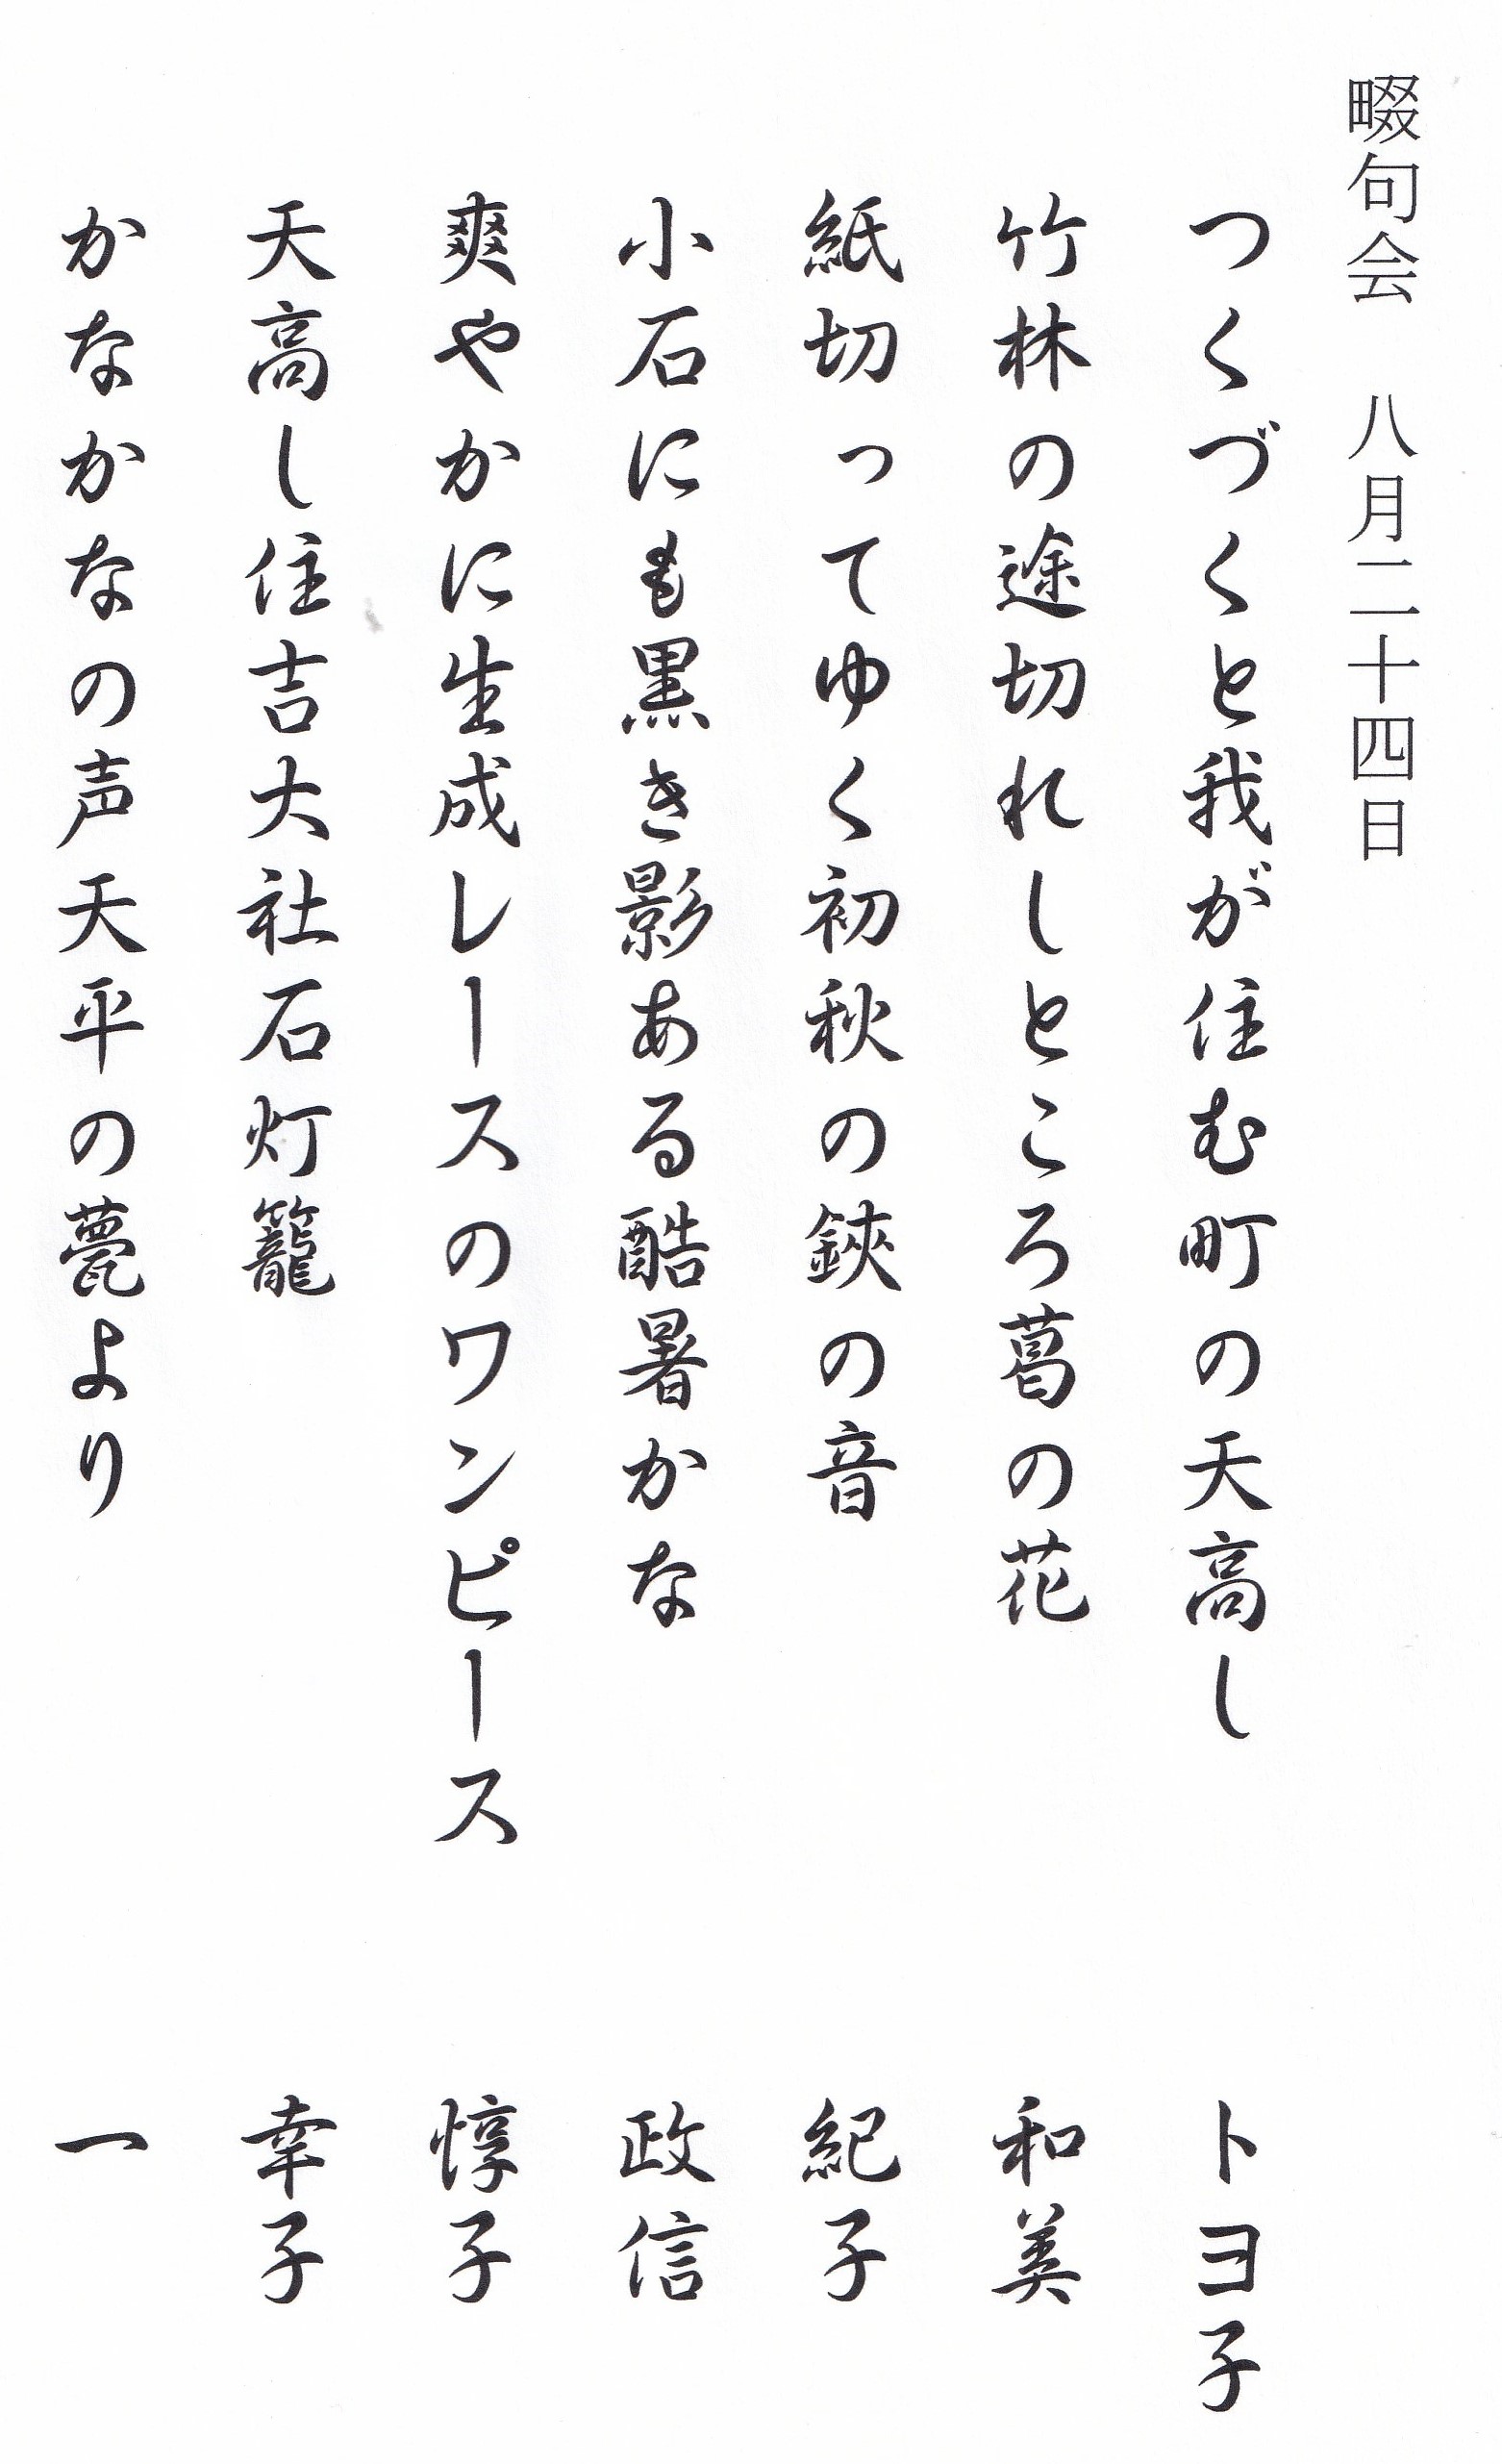 畷句会　八月二十四日
つくづくと我が住む町の天高し　トヨ子
竹林の途切れしところ葛の花　和美
紙切ってゆく初秋の鋏の音　紀子
小石にも黒き影ある酷暑かな　政信
爽やかに生成レースのワンピース　惇子
天高し住吉大社石灯籠　幸子
かなかなの声天平の甍より　一